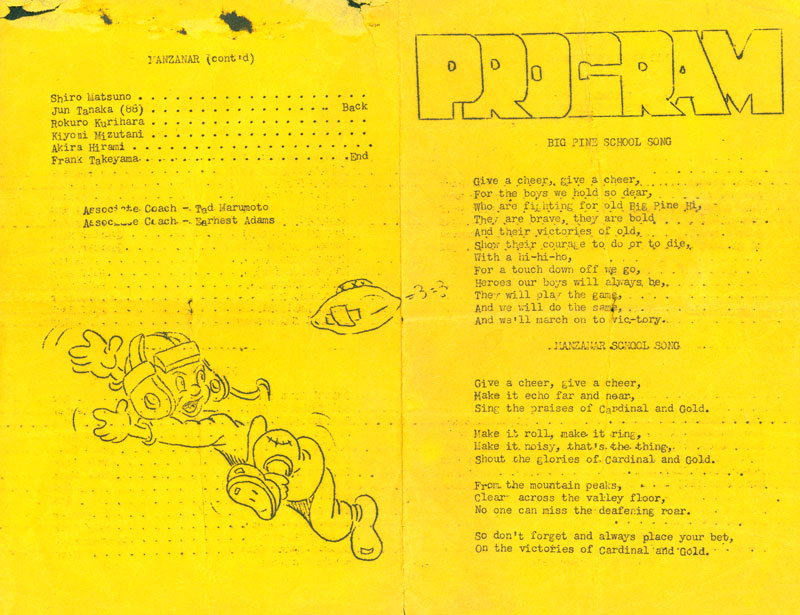 MANZANAR (cont'd)
Shiro Matsuno . . . . . . . . . . . . . . . . . .
Jun Tanaka (88) . . . . . . . . . . . . . . . . Back
Rokuro Kurihara . . . . . . . . . . . . . . . . .
Kiyomi Mizutani . . . . . . . . . . . . . . . . .
Akira Hirami . . . . . . . . . . . . . . . . . . .
Frank Takeyama. . . . . . . . . . . . . . . . . .End
Associate Coach - Tad Marumoto
Associate Coach - Earnest Adams
=3=3
PROGRAM
BIG PINE SCHOOL SONG
Give a cheer, give a cheer,
For the boys we hold so dear,
Who are fighting for old Big Pine Hi,
They are brave, they are bold
And their victories of old,
Show their courage to do or to die,
With a hi-hi-ho,
For a touch down off we go,
Heroes our boys will always be,
They will play the game,
And we will do the same,
And we'll march on to vic-tory.
MANZANAR SCHOOL SONG
Give a cheer, give a cheer,
Make it echo far and near,
Sing the praises of Cardinal and Gold.
Make it roll, make it ring,
Make it noisy, that's the thing,
Shout the glories of Cardinal and Gold.
From the mountain peaks,
Clear across the valley floor,
No one can miss the deafening roar.
So don't forget and always place your bet,
On the victories of Cardinal and Gold.